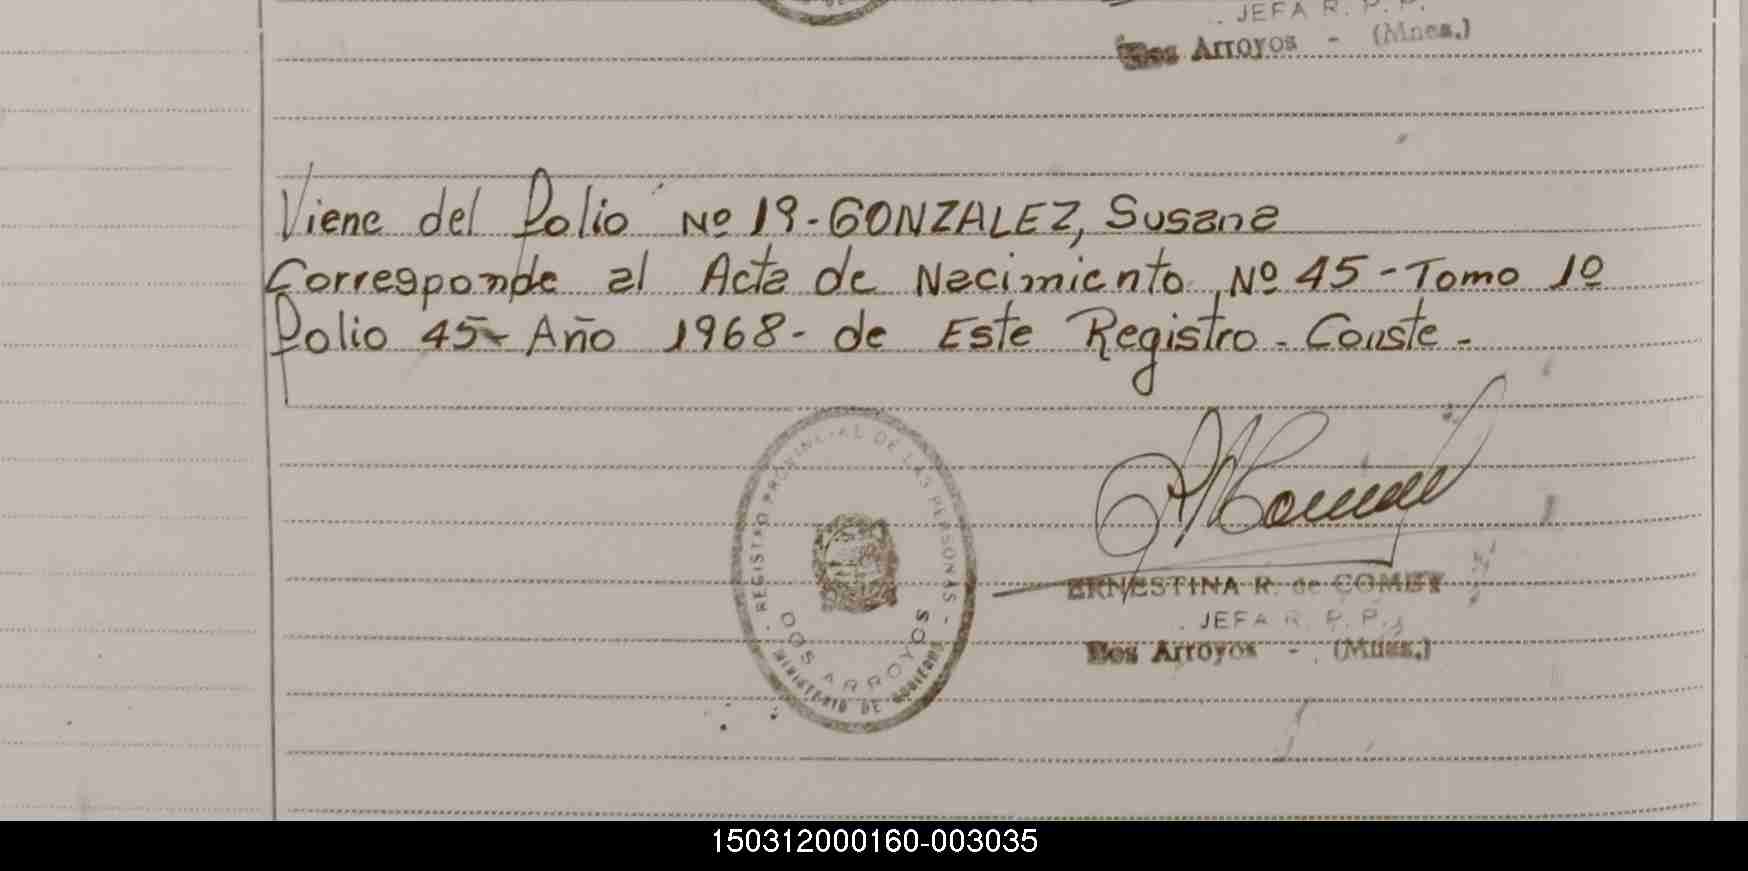 JEFA R. P. P.
Dos Arroyos - (Mnes.)
Viene del Folio Nº 19-GONZALEZ, Susana
Corresponde al Acta de Nacimiento Nº 45-Tomo 1º
Folio 45- Año 1968- de Este Registro- Conste-
- REGISTRO PROVINCIAL DE LAS PERSONAS -
DOS ARROYOS
MINISTERIO DE GOBIERNO
ERNESTINA R. de
JEFA R. P. P.
Dos Arroyos - (Mnes.)
150312000160-003035